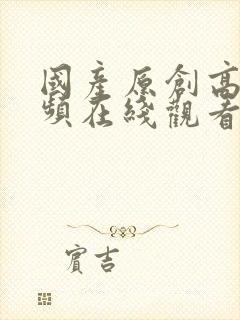 國産原創高
頻在綫觀看
賓吉